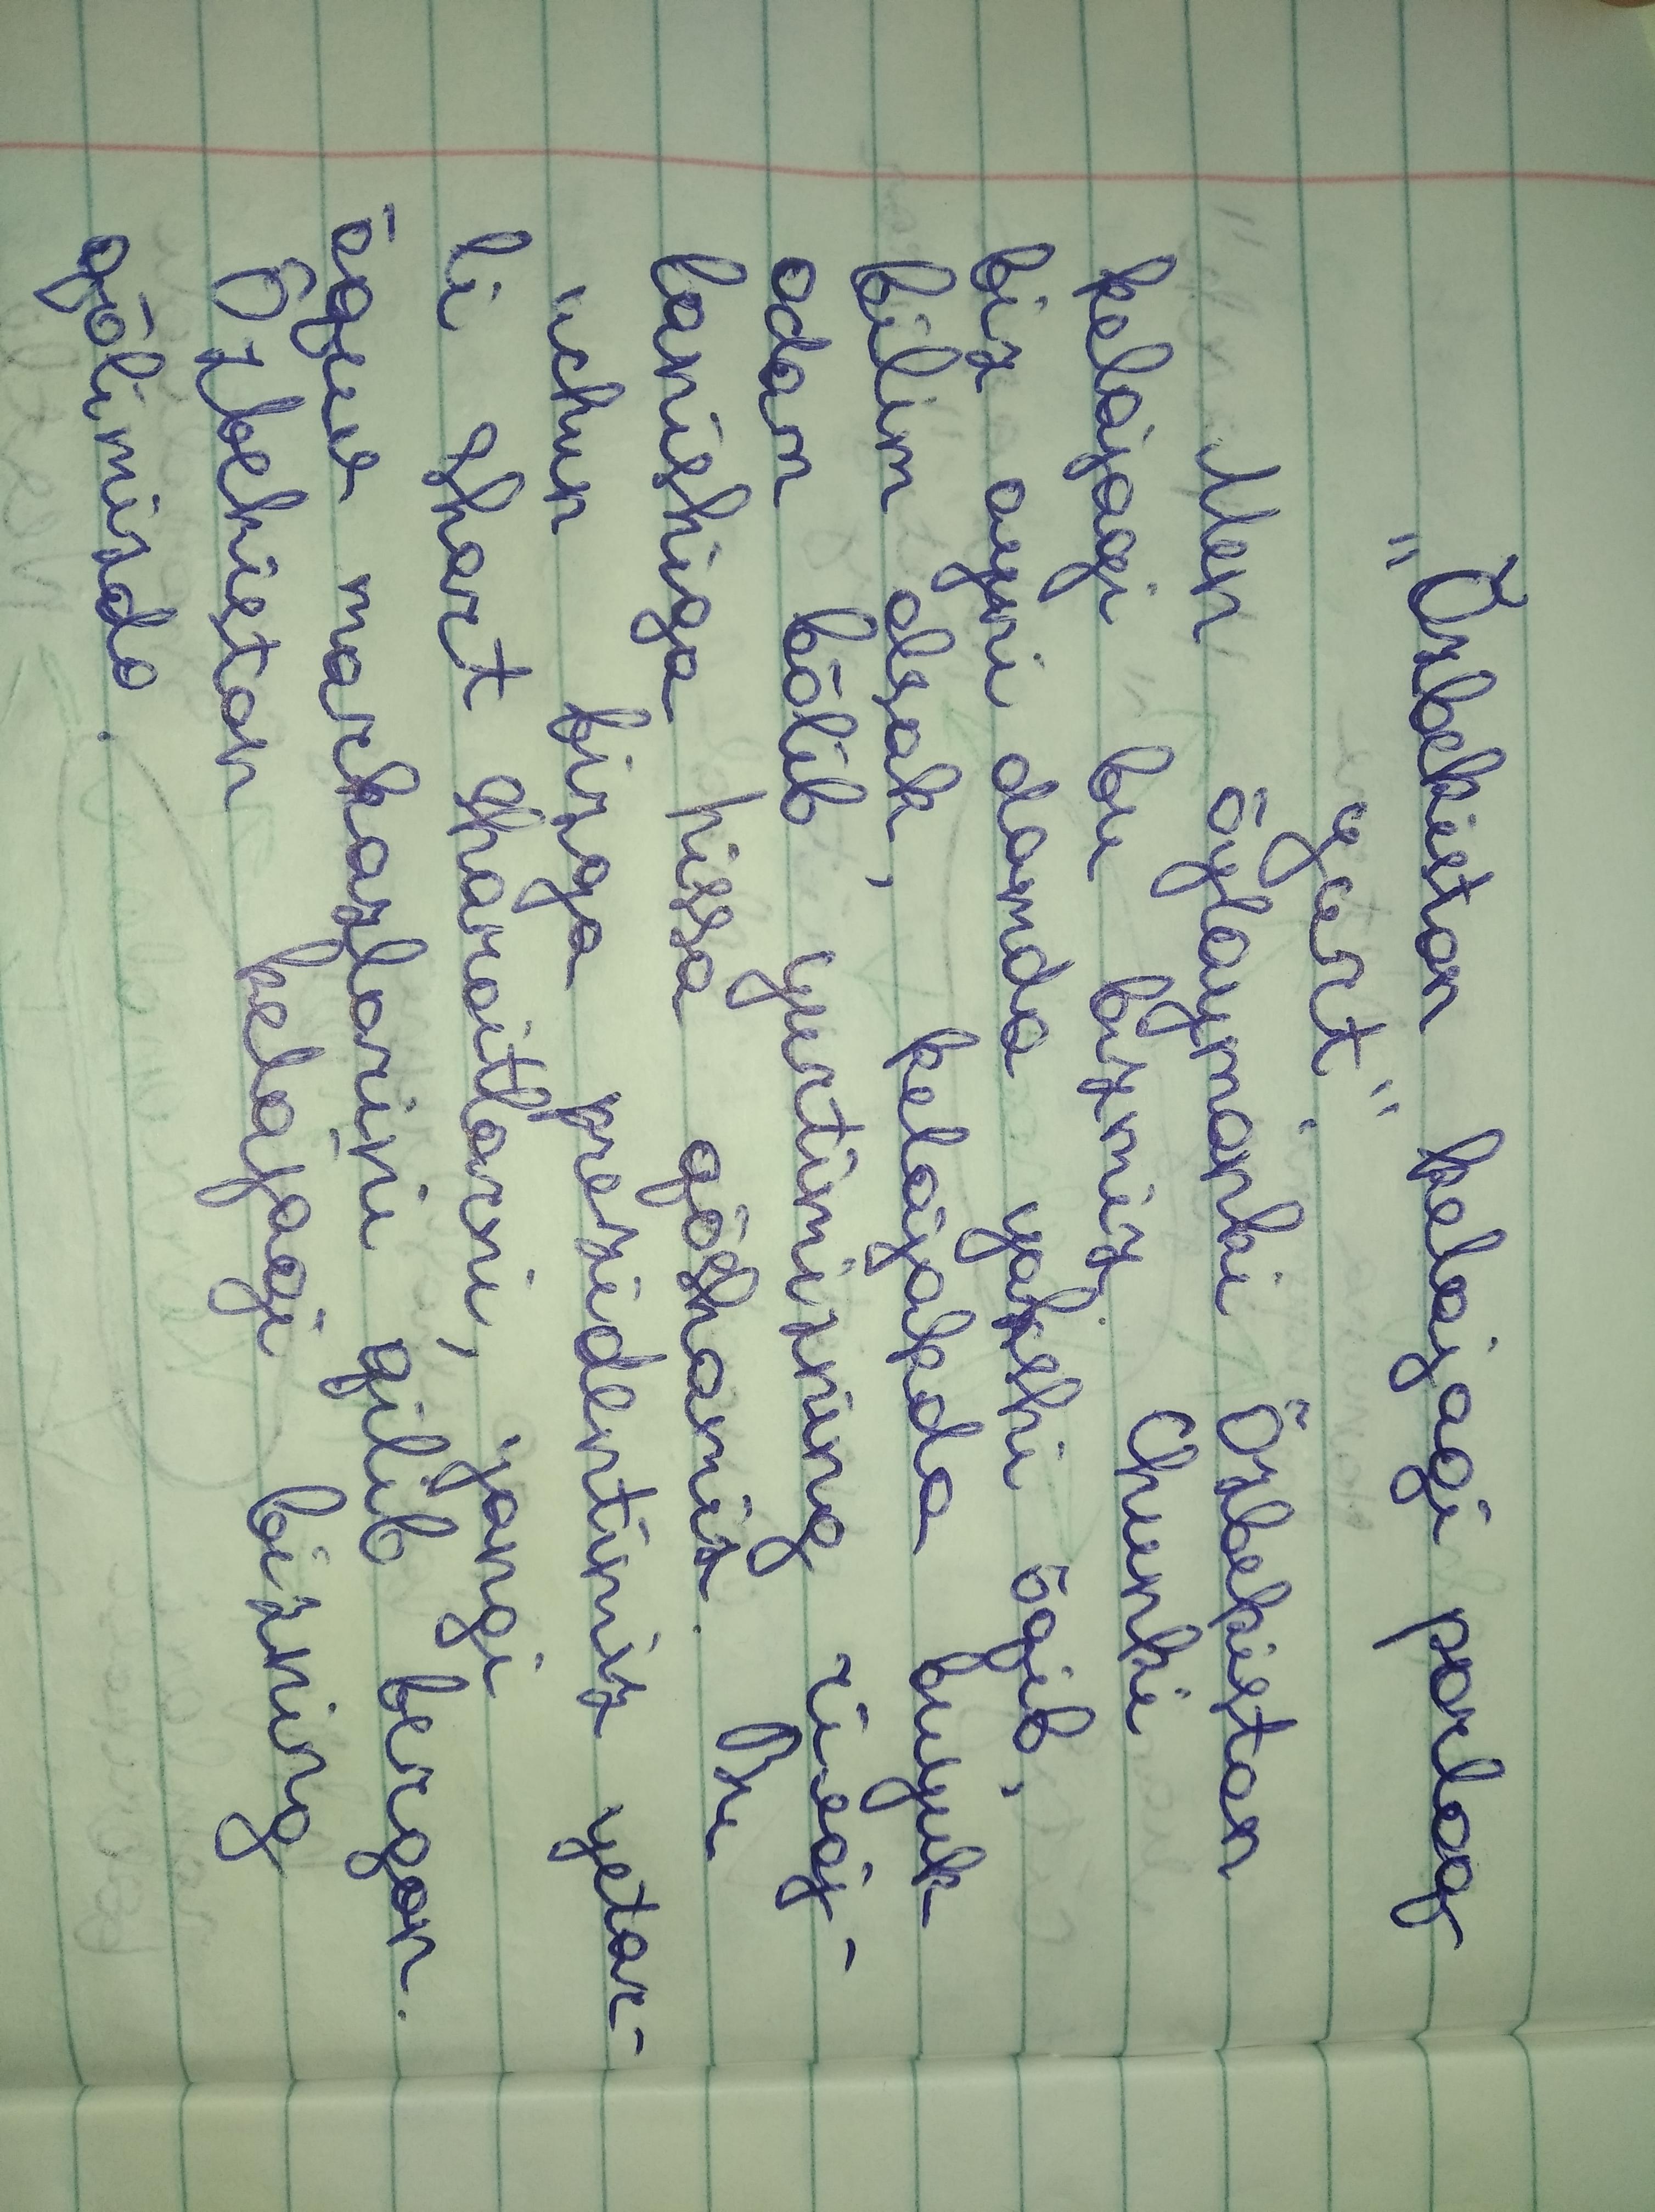 "Ōzbekiston kelajagi porloq
yurt".
Men ōylaymanki Ōzbekiston
kelajagi bu bizmiz. Chunki
biz ayni damda yahshi ōqib,
bilim olsak, kelajakda buyuk
odam bōlib yurtimizning rivoj-
lanishiga hissa qōshamiz. Bu
uchun bizga prezidentimiz yetar-
li shart sharoitlarni, yangi
ōquv markazlarini qilib bergan.
Ōzbekiston kelajagi bizning
qōlimizda.